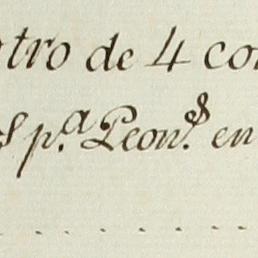 tro de 4 co
p.ª Peon.ˢ en